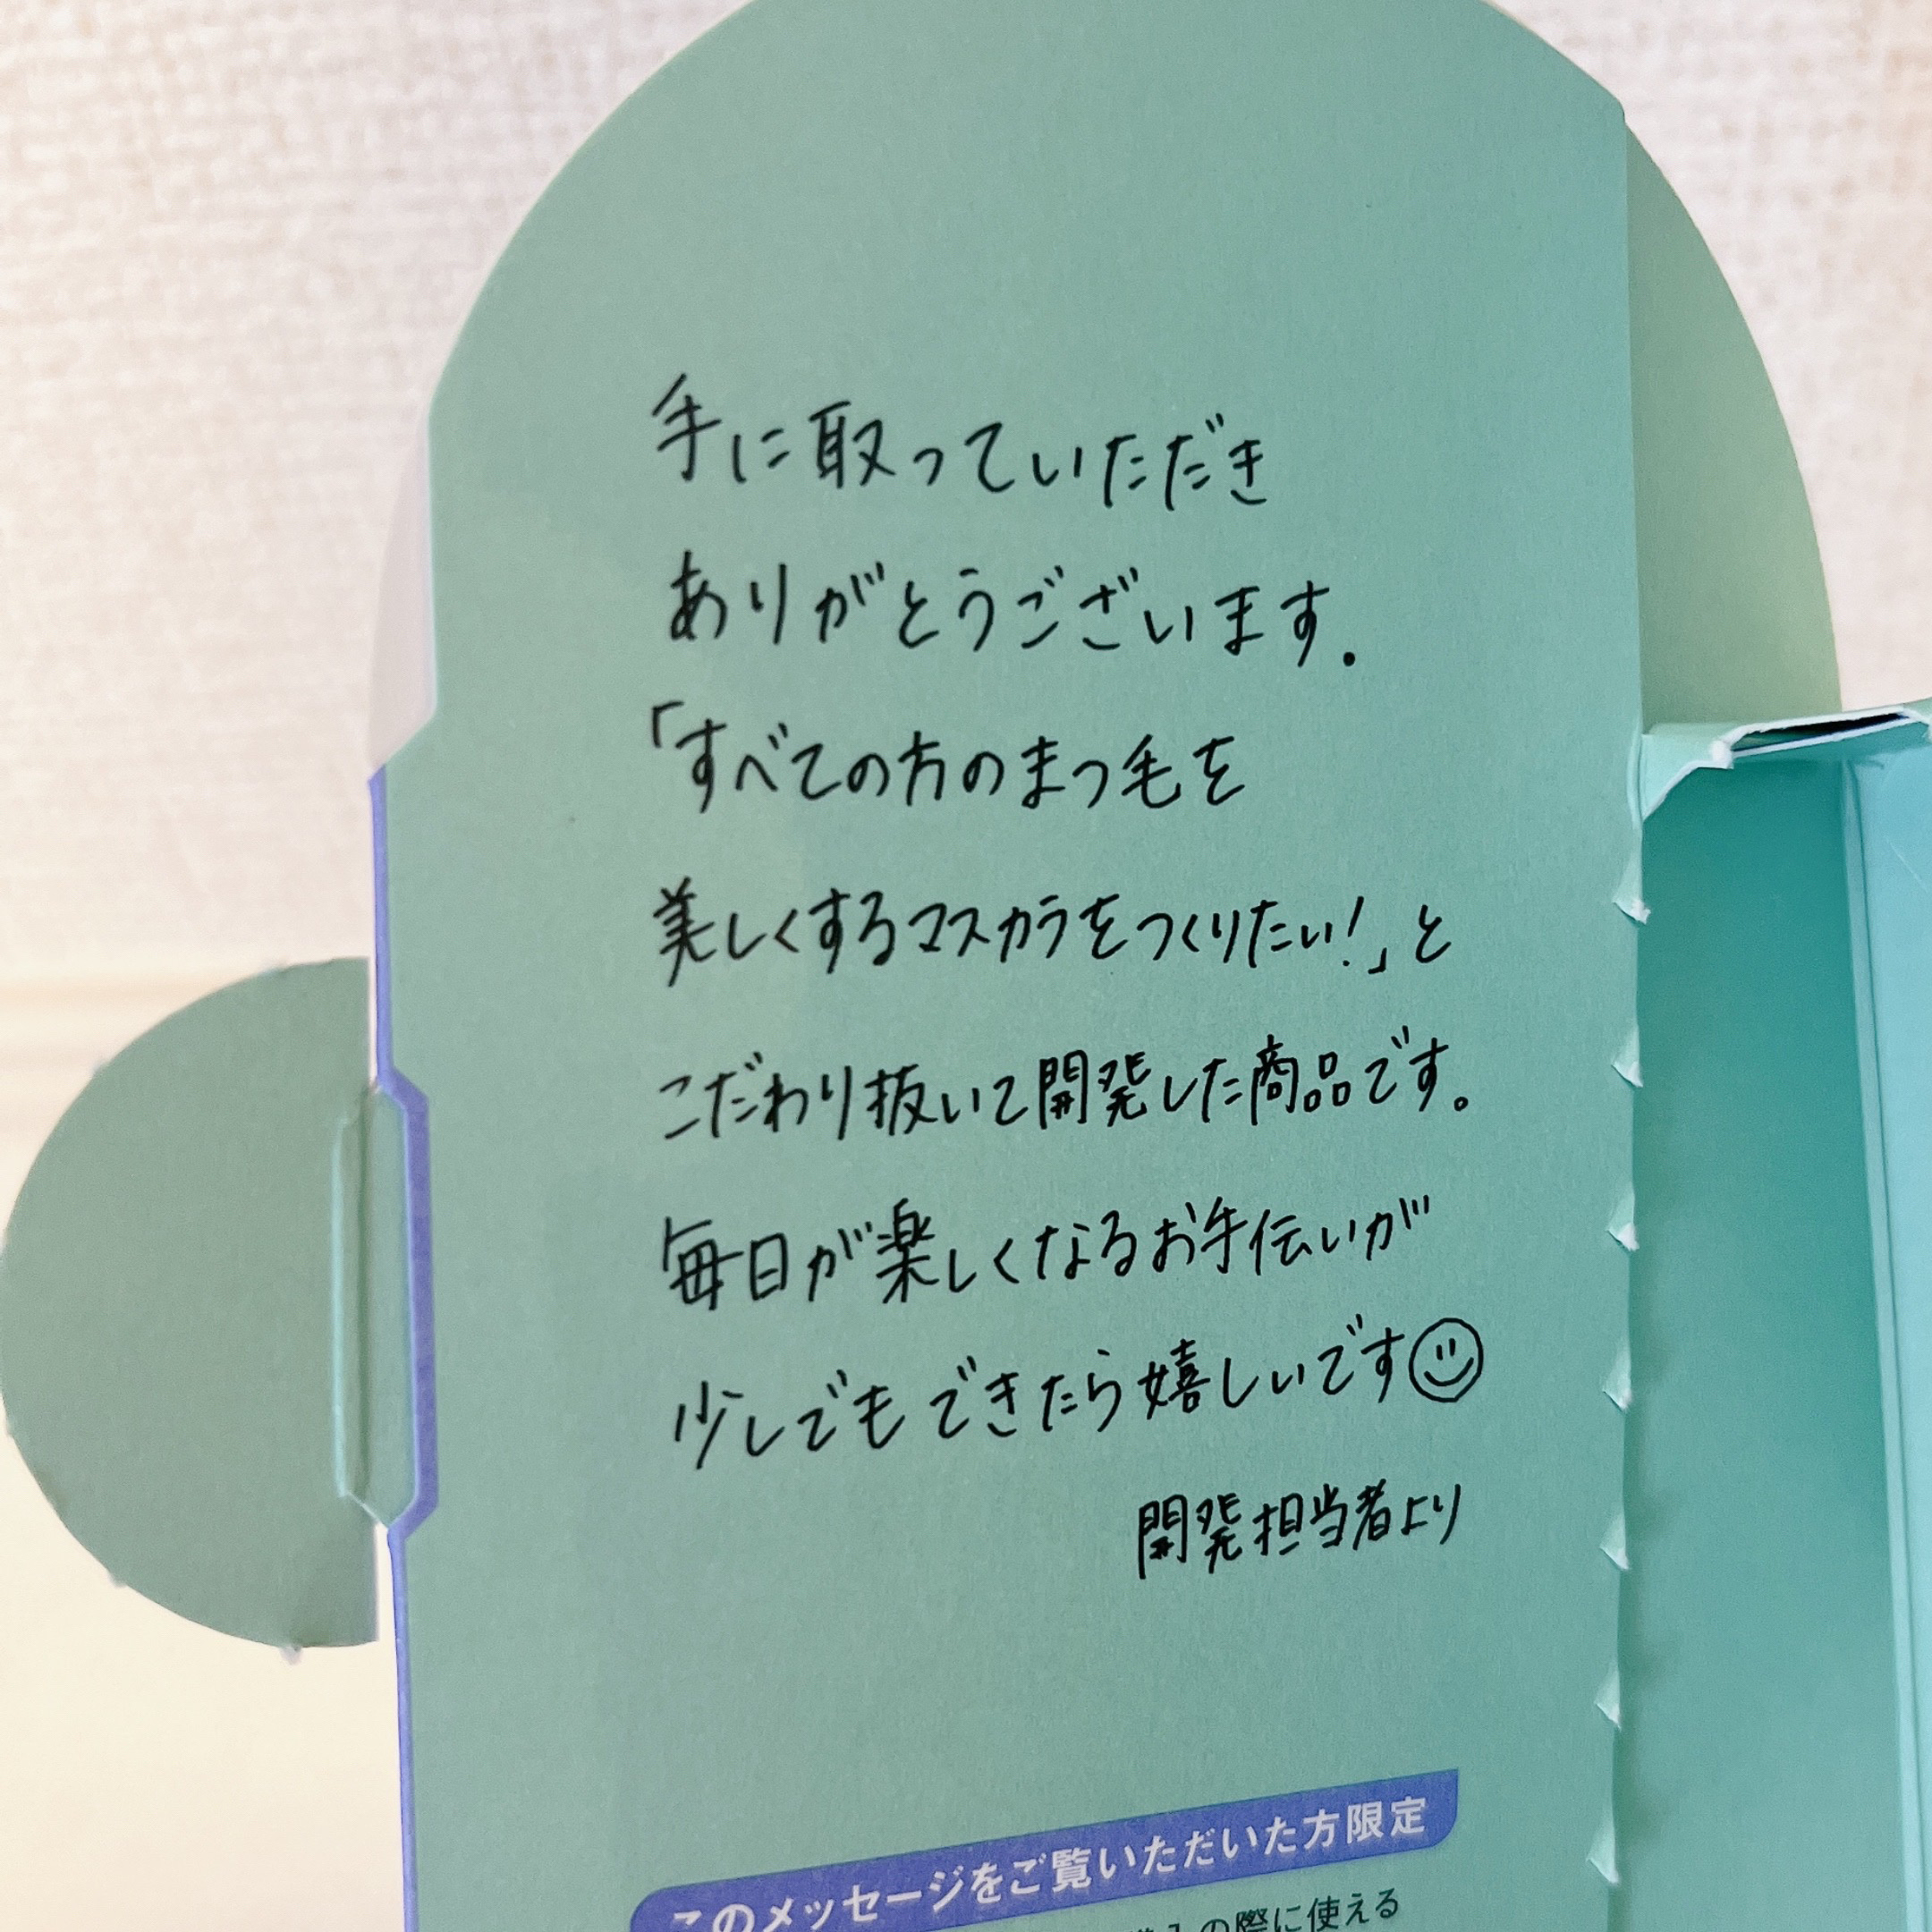 手に取っていただき
ありがとうございます.
「すべての方のまつ毛を
美しくするマスカラをつくりたい!」と
こだわり抜いて開発した商品です。
毎日が楽しくなるお手伝いが
少しでもできたら嬉しいです
開発担当者より
このメッセージをご覧いただいた方限定
の際に使える